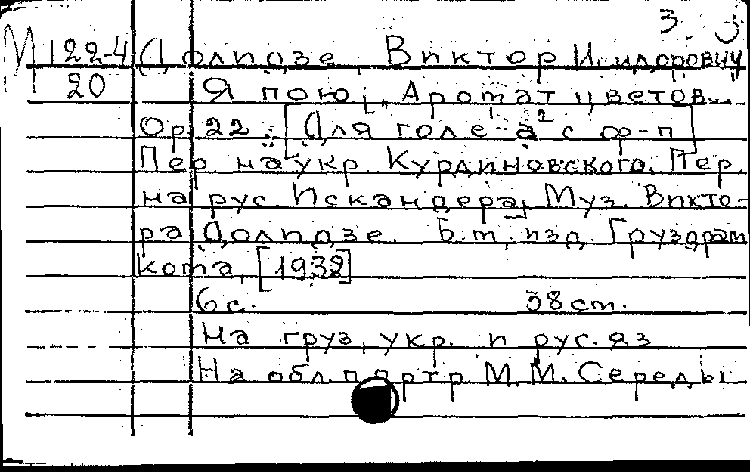 3.
М 122-4 Долидзе, Виктор Исидорович
20 Я пою!, Аромат цветов...
Op. 22.: [Для голе-а² с ф-п]
Пер на укр. Курдиновского. Пер.
на рус. Искандера, Муз. Викто-
ра Долидзе. Б.м, изд. Груздрам
кота, [1932]
6 с. 38 cm.
На груз, укр. и рус. яз
На обл. портр М.М. Середы